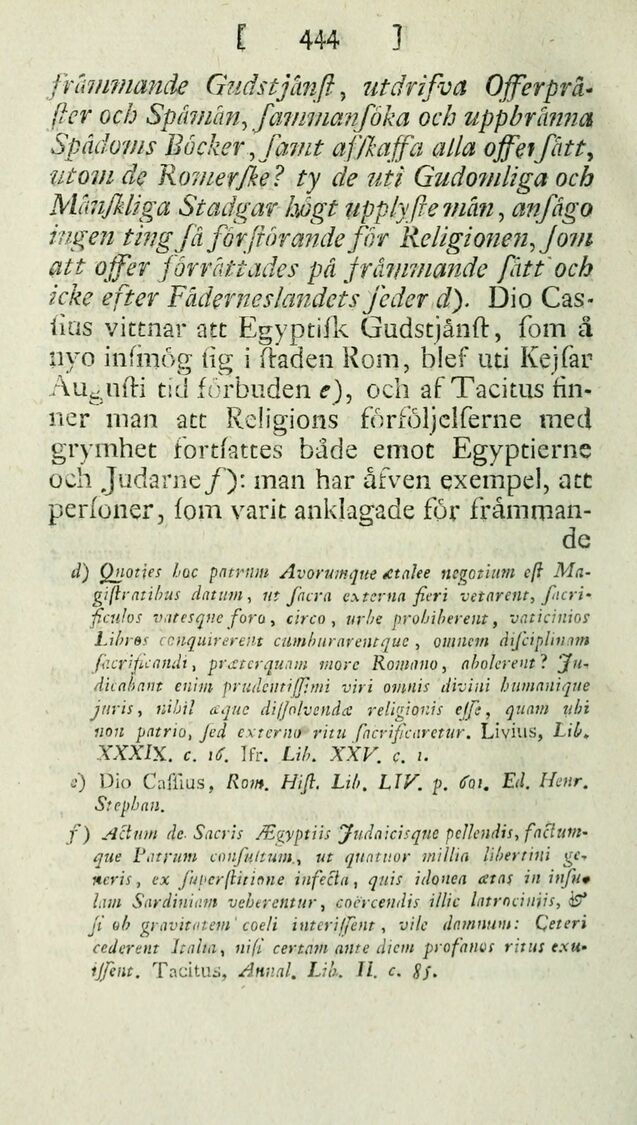 [ 444 ]
främmande Gudstjånſt, utdrifva Offerprå-
ſter och Spåmån, ſammanſöka och uppbrånna
Spådoms Böcker, ſamt afſkaffa alla offerſått,
utom de Romerſke? ty de uti Gudomliga och
Månſkliga Stadgar högt upplyſte mån, anſågo
ingen ting ſå förſtörande för Religionen, ſom
att offer förråttades på fråmmande ſått och
icke efter Fåderneslandets ſeder d). Dio Cas-
ſius vittnar att Egyptiſk Gudstjånſt, ſom å
nyo inſmög ſig i ſtaden Rom, blef uti Kejſar
Auguſti tid förbuden e), och af Tacitus fin-
ner man att Religions förföljelſerne med
grymhet fortſattes både emot Egyptierne
och Judarne f): man har åfven exempel, att
perſoner, ſom varit anklagade för fråmman-
de
d) Quoties hoc patrum Avorumque ætalee negotium eſt Ma-
giſtratibus datum, ut ſacra externa fieri vetarent, ſacri-
ficulos vatesque foro, circo, urbe prohiberent, vaticinios
Libros conquirerent cumburarentque, omnem diſciplinam
ſacrificandi, præterquam more Romano, abolerent? Ju-
dicabant enim prudentiſſimi viri omnis divini humanique
juris, nihil æque diſſolvendæ religionis eſſe, quam ubi
non patrio, ſed externo ritu ſacrificaretur. Livius, Lib.
XXXIX. c. 16. Ifr. Lib. XXV. c. 1.
e) Dio Caſſius, Rom. Hiſt. Lib. LIV. p. 601. Ed. Henr.
Stephan.
f) Actum de Sacris Ægyptiis Judaicisque pellendis, factum-
que Patrum conſultum, ut quatuor millia libertini ge-
neris, ex ſuperſtitione infecta, quis idonea ætas in inſu-
lam Sardiniam veherentur, coërcendis illic latrociniis, &
ſi ob gravitatem coeli interiſſent, vile damnum: Ceteri
cederent Italia, niſi certam ante diem profanos ritus exu-
iſſent. Tacitus, Annal. Lib. II. c. 85.